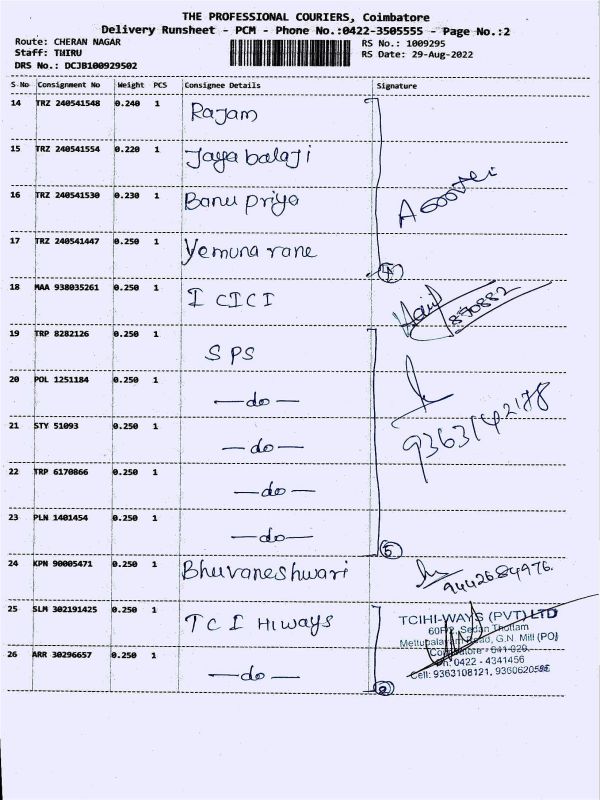 THE PROFESSIONAL COURIERS, Coimbatore
Delivery Runsheet - PCM - Phone No.:0422-3505555 - Page No.:2
Route: CHERAN NAGAR RS No.: 1009295
Staff: THIRU RS Date: 29-Aug-2022
DRS No.: DCJB100929502
S No Consignment No Weight PCS Consignee Details Signature
14 TRZ 240541548 0.240 1 Rajam
15 TRZ 240541554 0.220 1 Jayabalaji
16 TRZ 240541530 0.230 1 Banu priya
17 TRZ 240541447 0.250 1 Yemuna rane
4
18 MAA 938035261 0.250 1 ICICI 870882
19 TRP 8282126 0.250 1 SPS
20 POL 1251184 0.250 1 —do—
9363142178
21 STY 51093 0.250 1 —do—
22 TRP 6170866 0.250 1 —do—
23 PLN 1401454 0.250 1 —do—
5
24 KPN 90005471 0.250 1 Bhuvaneshwari 9442684976.
25 SLM 302191425 0.250 1 TCI Hiways
TCIHI-WAYS (PVT) LTD
60F/2, Sedan Thottam
Mettupalayam Road, G.N. Mill (PO)
Coimbatore - 641 029.
Ph: 0422 - 4341456
Cell: 9363108121, 9360620586
26 ARR 30296657 0.250 1 —do—
2